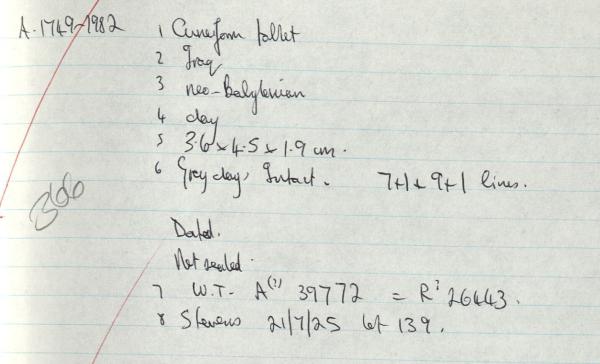 A.1749-1982
1 Cuneiform tablet
2 Iraq
3 neo-Babylonian
4 clay
5 3.6 x 4.5 x 1.9 cm.
6 Grey clay, Intact. 7+1+9+1 lines.
366
Dated.
Not sealed.
7 W.T. A(?) 39772 = R? 26443.
8 Stevens 21/7/25 lot 139.